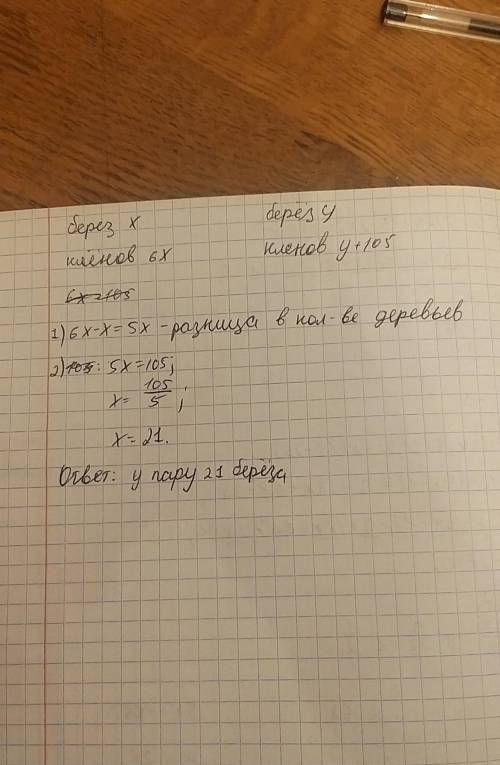 берез x
берёз y
клёнов 6x
кленов y+105
6x=105
1) 6x-x=5x - разница в кол-ве деревьев
2) 105: 5x=105;
x= 105/5;
x=21.
Ответ: у пару 21 берёза